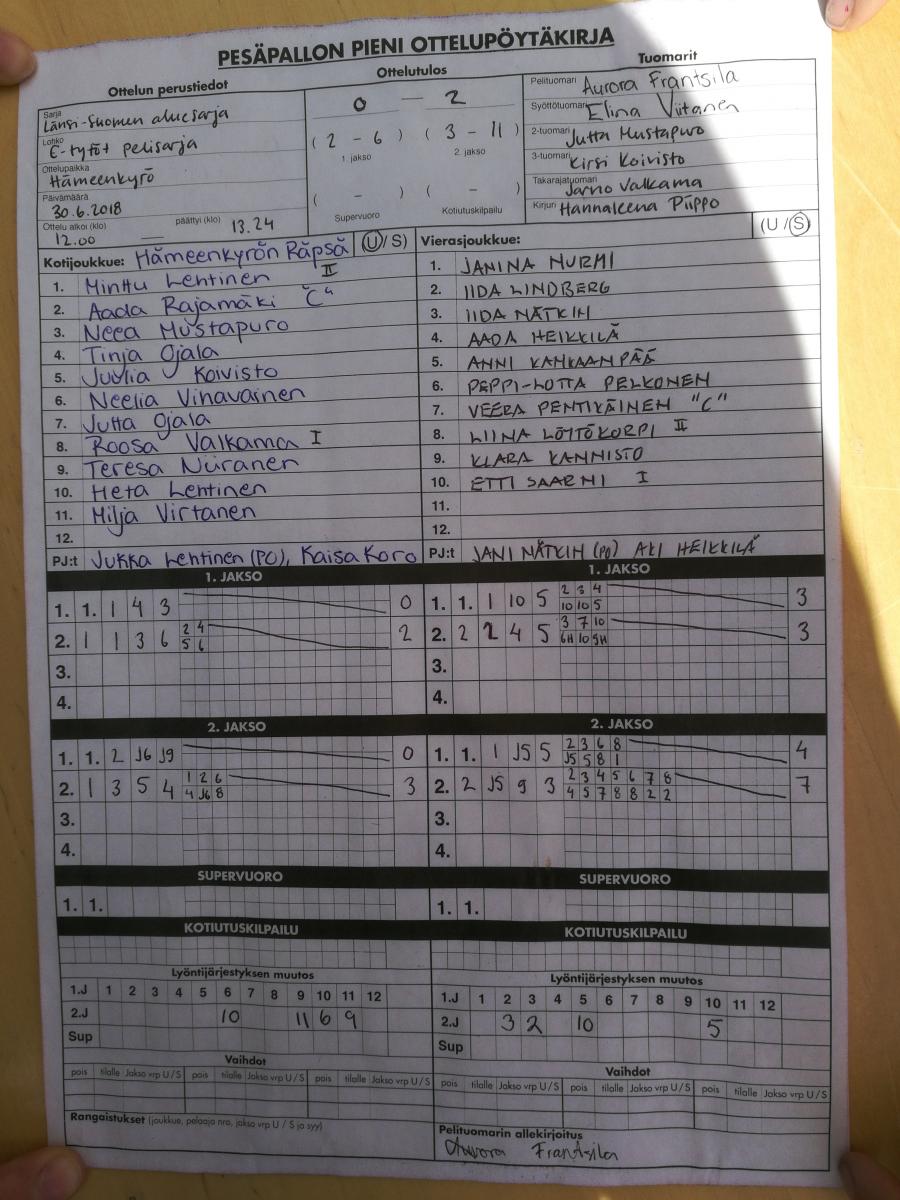 PESÄPALLON PIENI OTTELUPÖYTÄKIRJA
Ottelun perustiedot
Sarja Länsi-Suomen aluesarja
Lohko E-tytöt pelisarja
Ottelupaikka Hämeenkyrö
Päivämäärä 30.6.2018
Ottelu alkoi (klo) 12.00 — päättyi (klo) 13.24
Ottelutulos
0 — 2
( 2 - 6 ) ( 3 - 11 )
1. jakso 2. jakso
( - ) ( - )
Supervuoro Kotiutuskilpailu
Tuomarit
Pelituomari Aurora Frantsila
Syöttötuomari Elina Viitanen
2-tuomari Jutta Mustapuro
3-tuomari Kirsi Koivisto
Takarajatuomari Jarno Valkama
Kirjuri Hannaleena Piippo
Kotijoukkue: Hämeenkyrön Räpsä (U/S)
1. Minttu Lehtinen II
2. Aada Rajamäki "C"
3. Neea Mustapuro
4. Tinja Ojala
5. Juulia Koivisto
6. Neelia Vihavainen
7. Jutta Ojala
8. Roosa Valkama I
9. Teresa Niiranen
10. Heta Lehtinen
11. Milja Virtanen
12.
PJ:t Jukka Lehtinen (PO), Kaisa Koro
Vierasjoukkue: (U/S)
1. JANINA NURMI
2. IIDA LINDBERG
3. IIDA NÄTKIN
4. AADA HEIKKILÄ
5. ANNI KANKAANPÄÄ
6. PEPPI-LOTTA PELKONEN
7. VEERA PENTIKÄINEN "C"
8. LIINA LÖTTÖKORPI II
9. KLARA KANNISTO
10. ETTI SAARNI I
11.
12.
PJ:t JANI NÄTKIN (PO) AKI HEIKKILÄ
1. JAKSO
1. 1. 1 4 3 0
2. 1 1 3 6 2 4 2
5 6
3.
4.
1. JAKSO
1. 1. 1 10 5 2 3 4 3
10 10 5
2. 2 1 4 5 3 7 10 3
6H 10 9H
3.
4.
2. JAKSO
1. 1. 2 J6 J9 0
2. 1 3 5 4 1 2 6 3
4 J6 8
3.
4.
2. JAKSO
1. 1. 1 J5 5 2 3 6 8 4
J5 5 8 1
2. 2 J5 9 3 2 3 4 5 6 7 8 7
4 5 7 8 8 2 2
3.
4.
SUPERVUORO
1. 1.
SUPERVUORO
1. 1.
KOTIUTUSKILPAILU
KOTIUTUSKILPAILU
Lyöntijärjestyksen muutos
1.J 1 2 3 4 5 6 7 8 9 10 11 12
2.J 10 11 6 9
Sup
Lyöntijärjestyksen muutos
1.J 1 2 3 4 5 6 7 8 9 10 11 12
2.J 3 2 10 5
Sup
Vaihdot
pois tilalle Jakso vrp U / S pois tilalle Jakso vrp U / S pois tilalle Jakso vrp U / S
Vaihdot
pois tilalle Jakso vrp U / S pois tilalle Jakso vrp U / S pois tilalle Jakso vrp U / S
Rangaistukset (joukkue, pelaaja nro, jakso vrp U / S ja syy)
Pelituomarin allekirjoitus
Aurora Frantsila